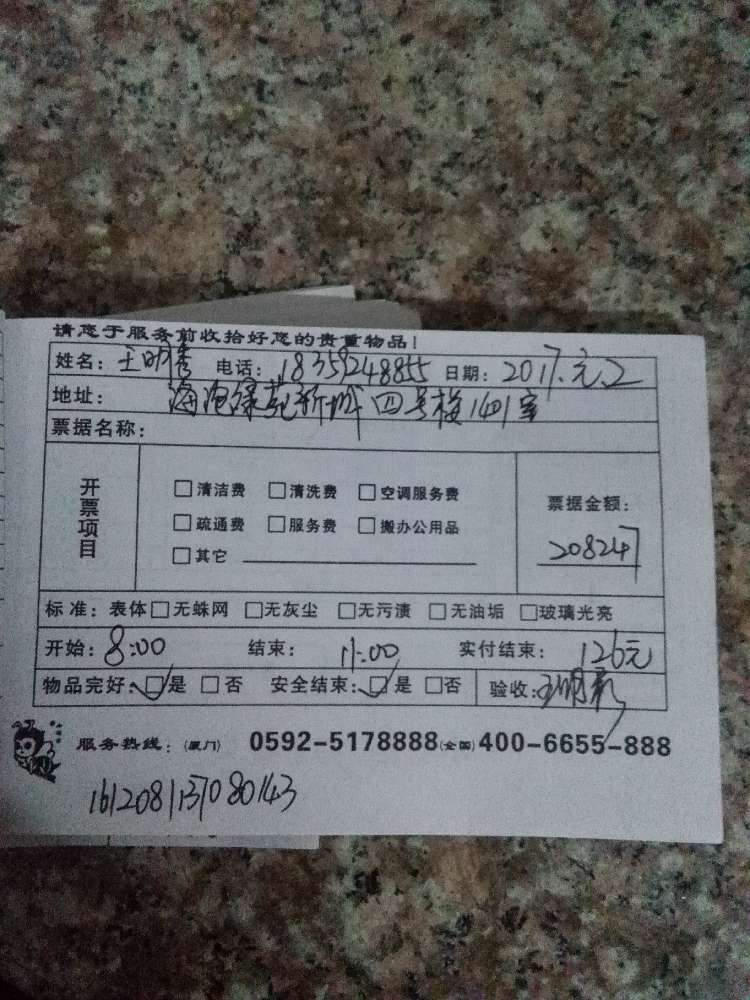 请您于服务前收拾好您的贵重物品！
姓名： 电话：18359248855 日期：2017.元.2
地址：海沧绿苑新城四号楼1401室
票据名称：
开票项目
□清洁费 □清洗费 □空调服务费
□疏通费 □服务费 □搬办公用品
□其它
票据金额：
208247
标准：表体□无蛛网 □无灰尘 □无污渍 □无油垢 □玻璃光亮
开始：8:00 结束：11:00 实付结束：126元
物品完好：☑是 □否 安全结束：☑是 □否 验收：
服务热线：(厦门) 0592-5178888(全国)400-6655-888
1612081137080143